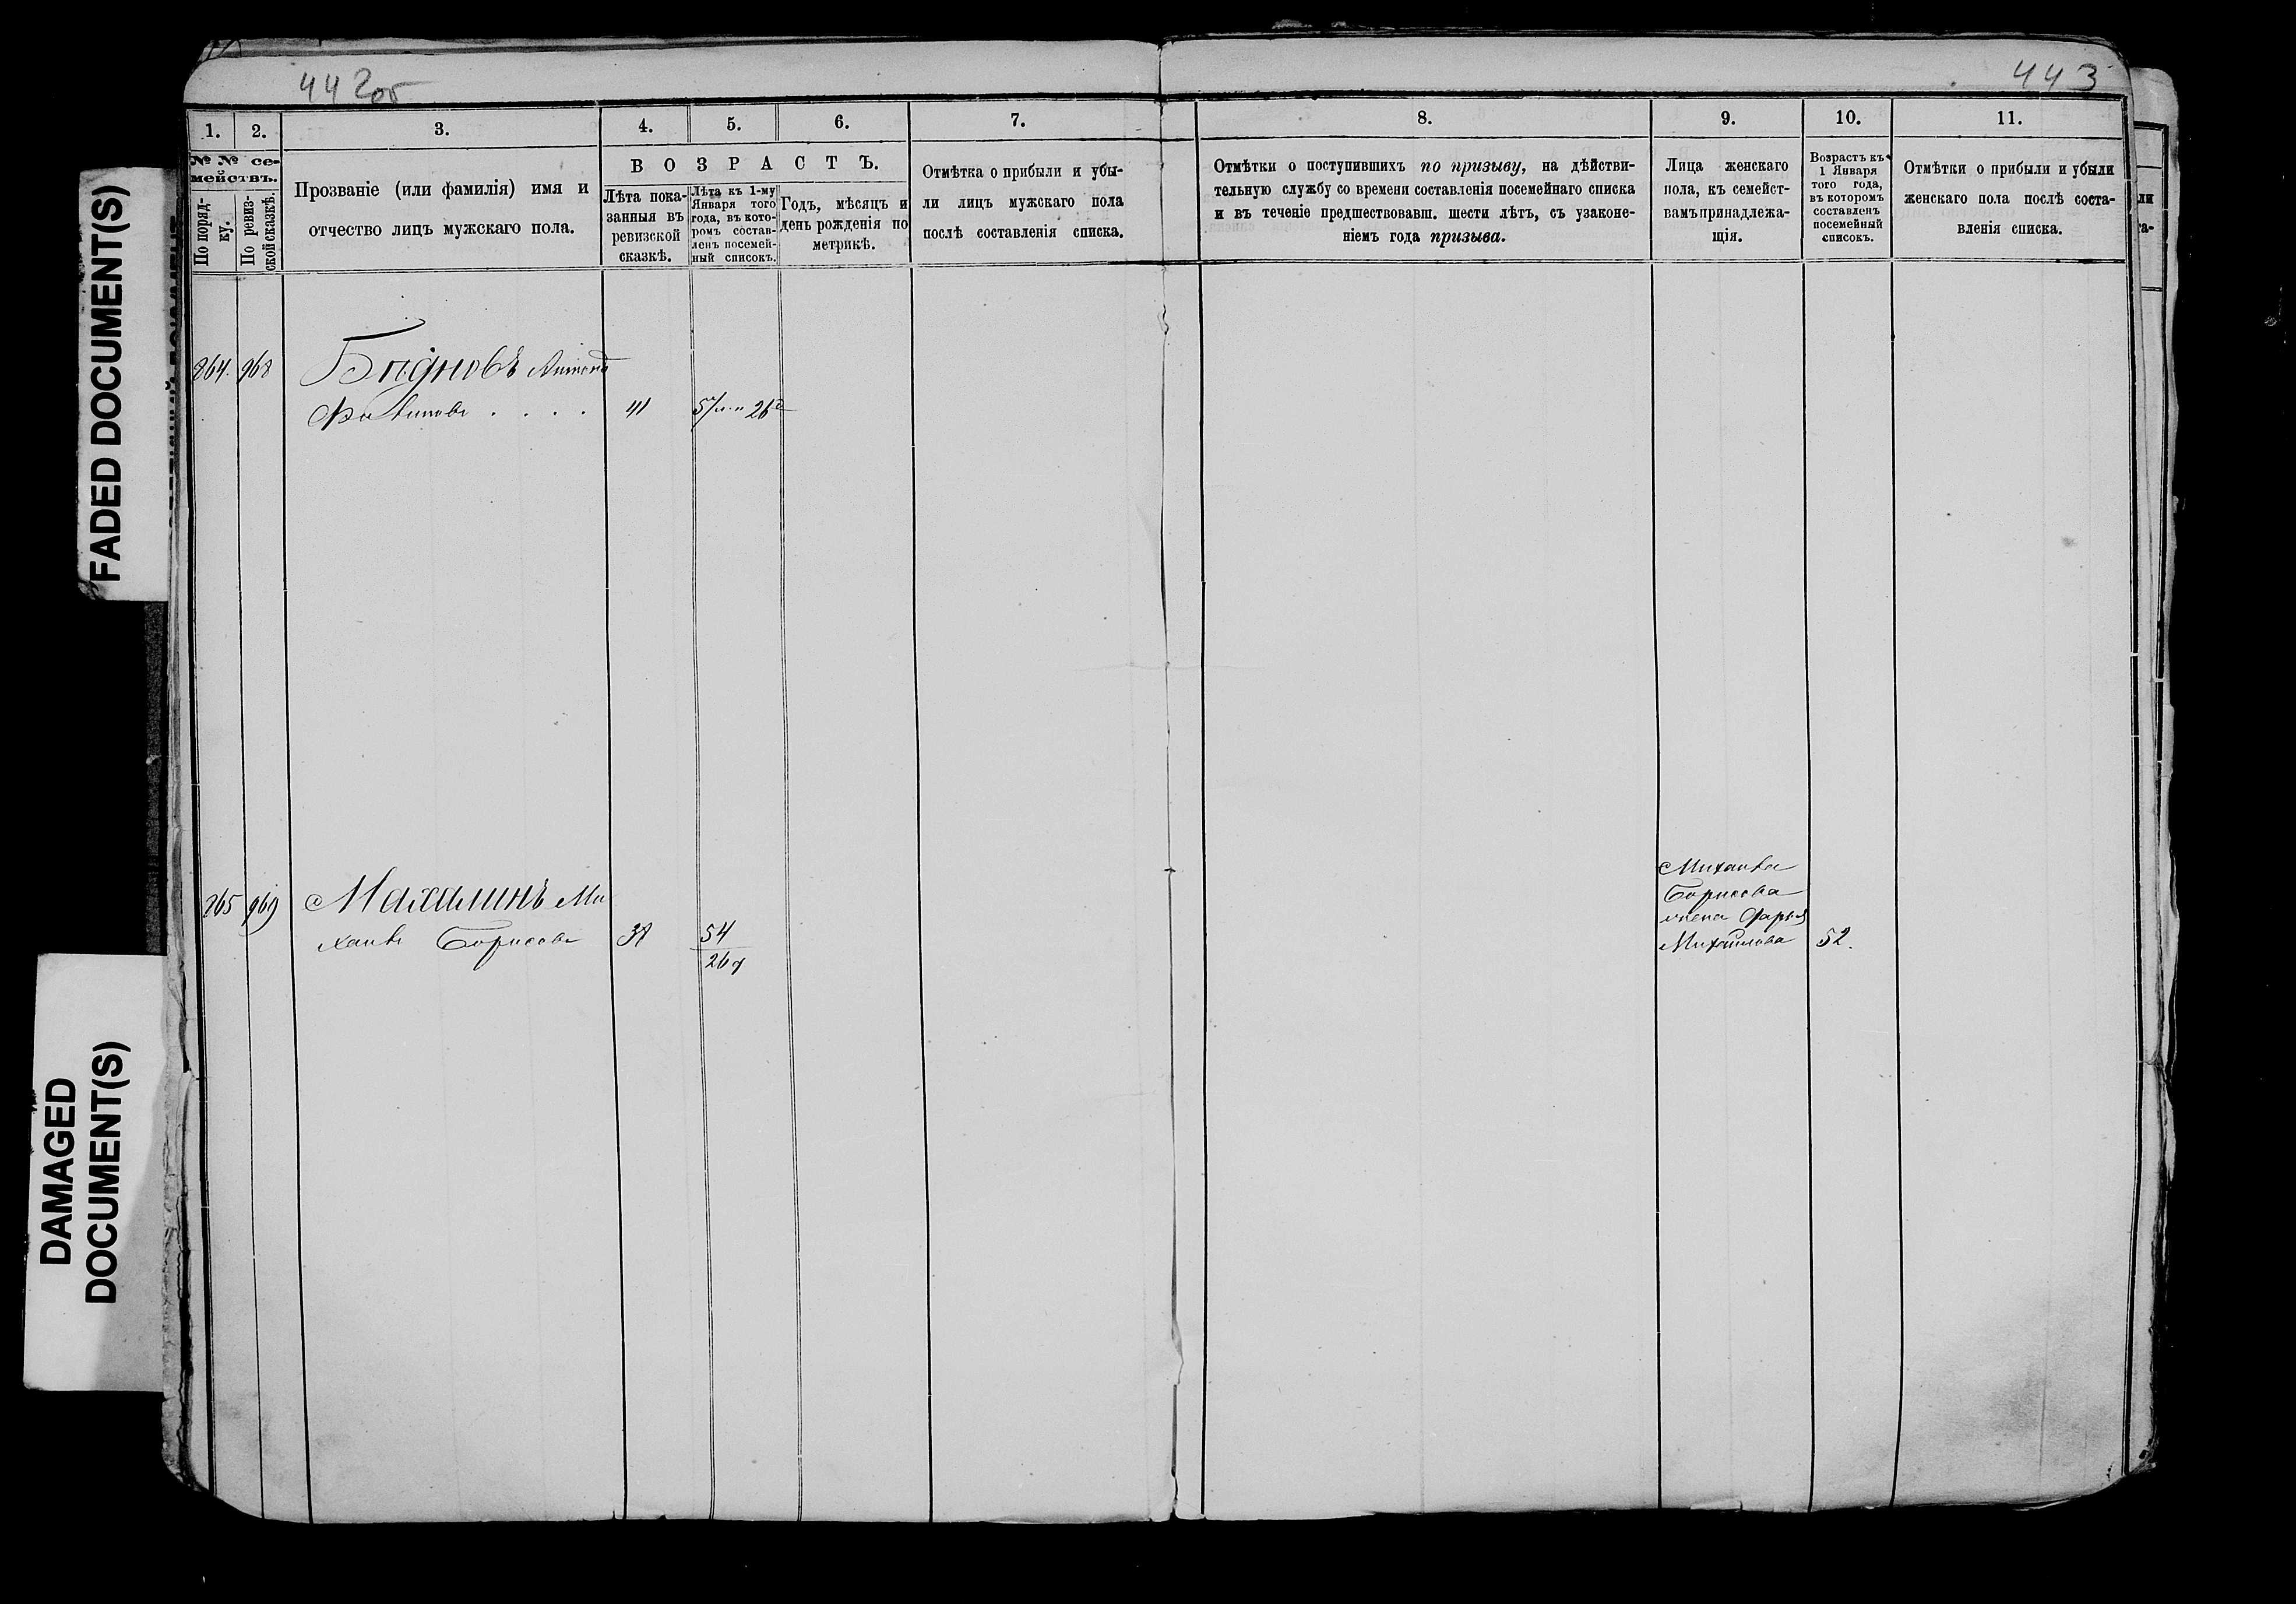 442об
443
1. 2. 3. 4. 5. 6. 7. 8. 9. 10. 11.
№ № се-
мействъ.
По поряд-
ку.
По ревиз-
ской сказкѣ.
Прозваніе (или фамилія) имя и
отчество лицъ мужскаго пола.
ВОЗРАСТЪ.
Лѣта пока-
занныя въ
ревизской
сказкѣ.
Лѣта къ 1-му
Января того
года, въ кото-
ромъ состав-
ленъ посемей-
ный списокъ.
Годъ, мѣсяцъ и
день рожденія по
метрикѣ.
Отмѣтка о прибыли и убы-
ли лицъ мужскаго пола
послѣ составленія списка.
Отмѣтки о поступившихъ по призыву, на дѣйстви-
тельную службу со времени составленія посемейнаго списка
и въ теченіе предшествовавш. шести лѣтъ, съ узаконе-
ніемъ года призыва.
Лица женскаго
пола, къ семейст-
вамъ принадлежа-
щія.
Возрастъ къ
1 Января
того года,
въ которомъ
составленъ
посемейный
списокъ.
Отмѣтки о прибыли и убыли
женскаго пола послѣ соста-
вленія списка.
864. 968 Бѣдновъ
41
865 969 Махалинъ Ми
хаилъ Борисовъ
54
26
Михаила
Борисова
жена
Михайлова 52.
FADED DOCUMENT(S)
DAMAGED
DOCUMENT(S)